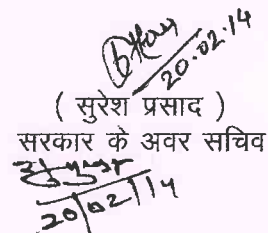 20.02.14
( सुरेश प्रसाद )
सरकार के अवर सचिव
20/02/14